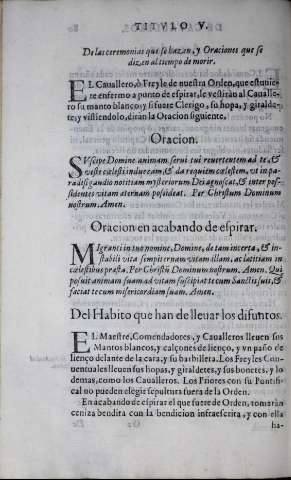 TITVLO V.
De las ceremonias que se hazan, y Oraciones que se
dizen al tiempo de morir.
EL Cauallero, ò Freyle de nuestra Orden, que estuuie-
re enfermo a punto de espirar, le vestiràn al Caualle-
ro su manto blanco, y si fuere Clerigo, su hopa, y giralde-
te, y vistiendolo, diràn la Oracion siguiente.
Oracion.
SVscipe Domine animam serui tui reuertentem ad te, &
veste cælesti indue eam, & da requiem cælestem, vt in pa-
radisi gaudio notitiam mysteriorum Dei agnoscat, & inter pos-
sidentes vitam æternam possideat. Per Christum Dominum
nostrum. Amen.
Oracion en acabando de espirar.
MIgranci in tuo nomine, Domine, de tam incerta, & in-
stabili vita sempiternam vitam illam, ac latitiam in
cælestibus præsta. Per Christū Dominum nostrum. Amen. Qui
posuit animam suam ad vitam suscipiat te cum Sanctis suis, &
faciat tecum misericordiam suam. Amen.
Del Habito que han de lleuar los difuntos.
EL Maestre, Comendadores, y Caualleros lleuen sus
Mantos blancos, y calçones de lienço, y vn paño de
lienço delante de la cara, y su barbillera. Los Freyles Con-
uentuales lleuen sus hopas, y giraldetes, y sus bonetes, y lo
demas, como los Caualleros. Los Priores con su Pontifi-
cal no pueden elegir sepultura fuera de la Orden.
En acabando de espirar el que fuere de Orden, tomaràn
ceniza bendita con la bendicion infraescrita, y con ella
ha-